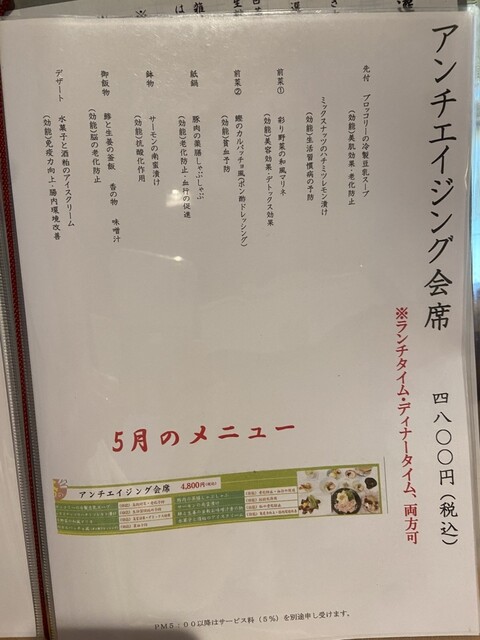 アンチエイジング会席 四八〇〇円(税込)
※ランチタイム・ディナータイム、両方可
先付 ブロッコリーの冷製豆乳スープ
(効能)美肌効果・老化防止
ミックスナッツのハチミツレモン漬け
(効能)生活習慣病の予防
前菜① 彩り野菜の和風マリネ
(効能)美容効果・デトックス効果
前菜② 鰹のカルパッチョ風(ポン酢ドレッシング)
(効能)貧血予防
紙鍋 豚肉の薬膳しゃぶしゃぶ
(効能)老化防止・血行の促進
鉢物 サーモンの南蛮漬け
(効能)抗酸化作用
御飯物 鯵と生姜の釜飯 香の物 味噌汁
(効能)脳の老化防止
デザート 水菓子と酒粕のアイスクリーム
(効能)免疫力向上・腸内環境改善
5月のメニュー
アンチエイジング会席 4,800円(税込)
PM5:00以降はサービス料(5%)を別途申し受けます。